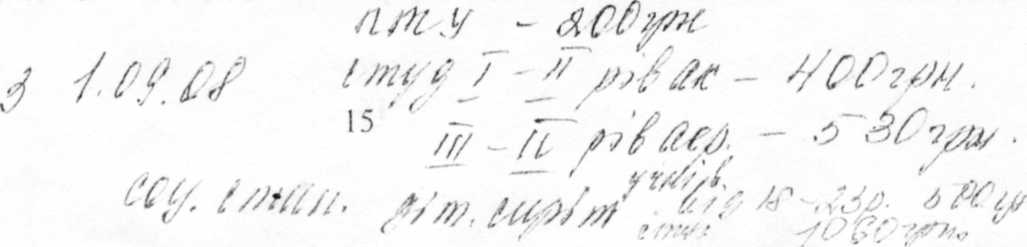 ПТУ – 200 грн
з 1.09.08 студ I – II рів ак – 400 грн.
15
III – IV рів акр. – 530 грн.
соц. стип. діт. сиріт учнів від 18 – 23 р. 500 грн
студ 1060 грн.